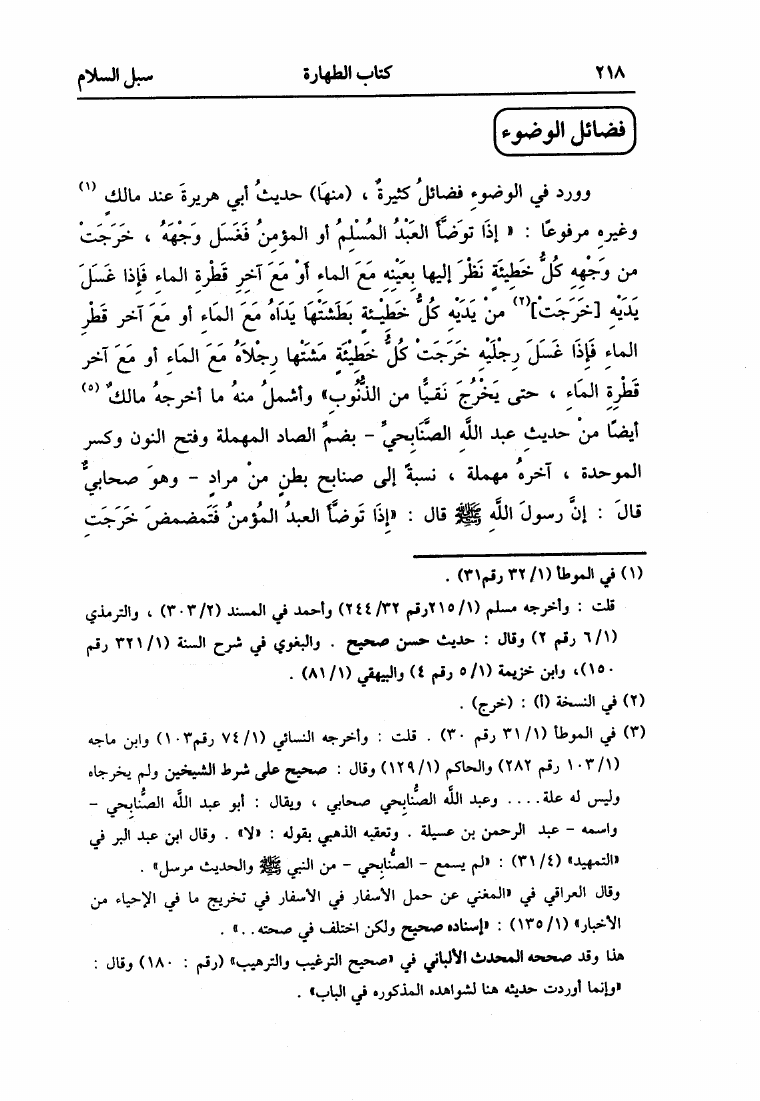 ٢١٨ كتاب الطهارة سبل السلام
فضائل الوضوء
وورد في الوضوءِ فضائلُ كثيرةٌ ، (منهَا) حديثُ أبي هريرةَ عند مالكٍ (١)
وغيرِه مرفوعًا : « إذَا توَضَّأَ العَبْدُ المُسْلِمُ أو المؤمنُ فَغَسَل وَجْهَهُ ، خَرَجَتْ
من وَجْهِهِ كُلُّ خطيئَةٍ نَظَرَ إليها بِعَيْنِهِ مَعَ الماء أَوْ مَعَ آخرِ قَطْرةِ الماء فَإذا غَسَلَ
يَدَيْهِ [خَرَجَتْ](٢) منْ يَدَيْهِ كُلُّ خَطيْـئةٍ بَطَشَتْهَا يَدَاهُ مَعَ المَاء أو مَعَ آخر قَطْرِ
الماء فَإِذَا غَسَلَ رِجلَيْهِ خَرَجَتْ كُلُّ خَطيْئَةٍ مَشَتْها رِجْلاَهُ مَعَ المَاء أو مَعَ آخر
قَطْرِةِ المَاءِ ، حتى يَخْرُجَ نَقيًّا من الذُّنُوب» وأشملُ منهُ ما أخرجهُ مالكٌ (٥)
أيضًا منْ حديثِ عبد اللَّهِ الصَّنَابِحيِّ – بضمِّ الصاد المهملة وفتح النون وكسر
الموحدة ، آخرهُ مهملة ، نسبةً إلى صنابح بطنٍ منْ مراد – وهوَ صحابيٌّ
قالَ : إنَّ رسولَ اللَّهِ ﷺ قال : «إذَا تَوضَّأَ العبدُ المُؤمنُ فَتَمضمضَ خَرَجَت
(١) في الموطأ (١/ ٣٢ رقم٣١) .
قلت : وأخرجه مسلم (١/ ٢١٥رقم ٣٢/ ٢٤٤) وأحمد في المسند (٢/ ٣٠٣) ، والترمذي
(١/ ٦ رقم ٢) وقال : حديث حسن صحيح . والبغوي في شرح السنة (١/ ٣٢١ رقم
١٥٠)، وابن خزيمة (١/ ٥ رقم ٤) والبيهقي (١/ ٨١) .
(٢) في النسخة (أ) : (خرج) .
(٣) في الموطأ (١/ ٣١ رقم ٣٠) . قلت : وأخرجه النسائي (١/ ٧٤ رقم١٠٣) وابن ماجه
(١/ ١٠٣ رقم ٢٨٢) والحاكم (١/ ١٢٩) وقال : صحيح على شرط الشيخين ولم يخرجاه
وليس له علة.... وعبد اللَّه الصُّنابحي صحابي ، ويقال : أبو عبد اللَّه الصُّنابحي –
واسمه – عبد الرحمن بن عسيلة . وتعقبه الذهبي بقوله : «لا» . وقال ابن عبد البر في
«التمهيد» (٤/ ٣١) : «لم يسمع – الصُّنابحي – من النبي ﷺ والحديث مرسل» .
وقال العراقي في «المغني عن حمل الأسفار في الأسفار في تخريج ما في الإحياء من
الأخبار» (١/ ١٣٥) : «إسناده صحيح ولكن اختلف في صحته..» .
هذا وقد صححه المحدث الألباني في «صحيح الترغيب والترهيب» (رقم : ١٨٠) وقال :
«وإنما أوردت حديثه هنا لشواهده المذكوره في الباب» .